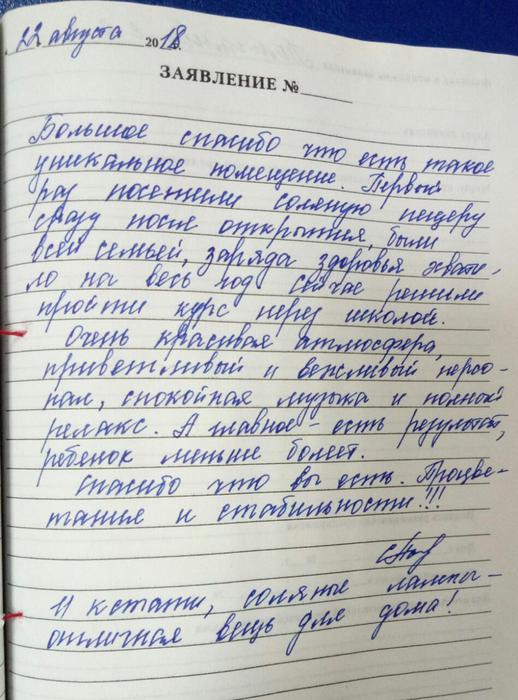 22 августа 2018.
ЗАЯВЛЕНИЕ №
Большое спасибо что есть такое
уникальное помещение. Первый
раз посетили соляную пещеру
сразу после открытия, были
всей семьёй, заряда здоровья хвати-
ло на весь год. Сейчас решили
пройти курс перед школой.
Очень красивая атмосфера,
приветливый и вежливый персо-
нал, спокойная музыка и полный
релакс. А главное - есть результат,
ребенок меньше болеет.
Спасибо что вы есть. Процве-
тания и стабильности!!!
И кстати, соляные лампы -
отличная вещь для дома!